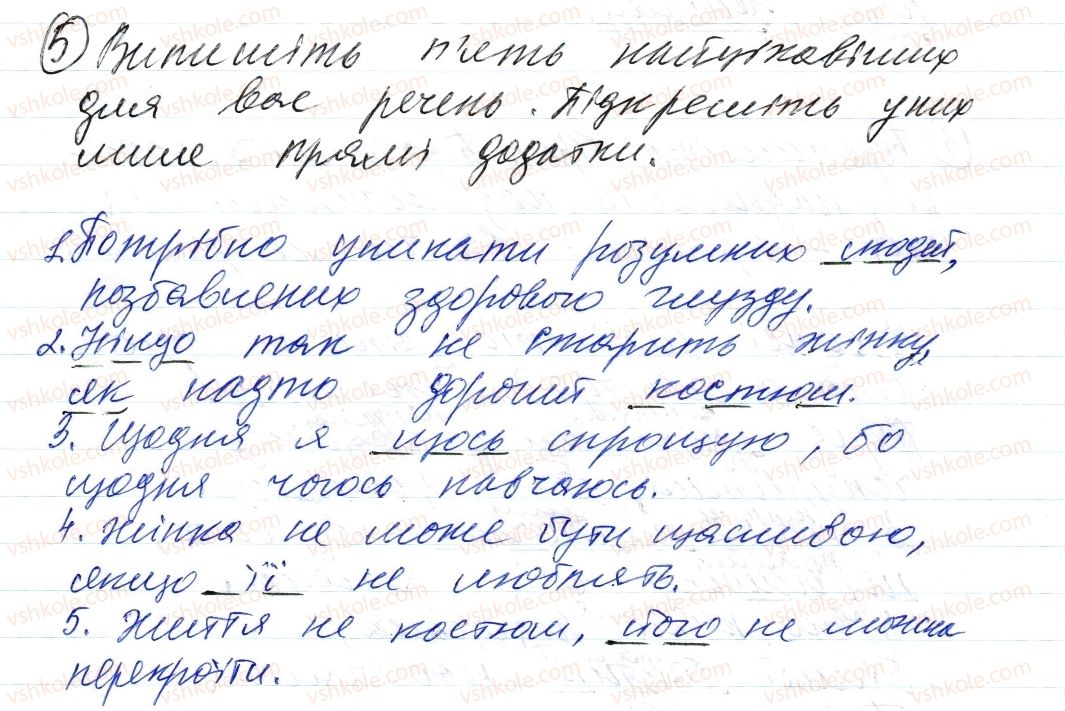 5 Випишіть п'ять найцікавіших
для вас речень. Підкресліть у них
лише прямі додатки.
1. Потрібно уникати розумних людей,
позбавлених здорового глузду.
2. Ніщо так не старить жінку,
як надто дорогий костюм.
3. Щодня я щось спрощую, бо
щодня чогось навчаюсь.
4. Жінка не може бути щасливою,
якщо її не люблять.
5. Життя не костюм, його не можна
перекроїти.